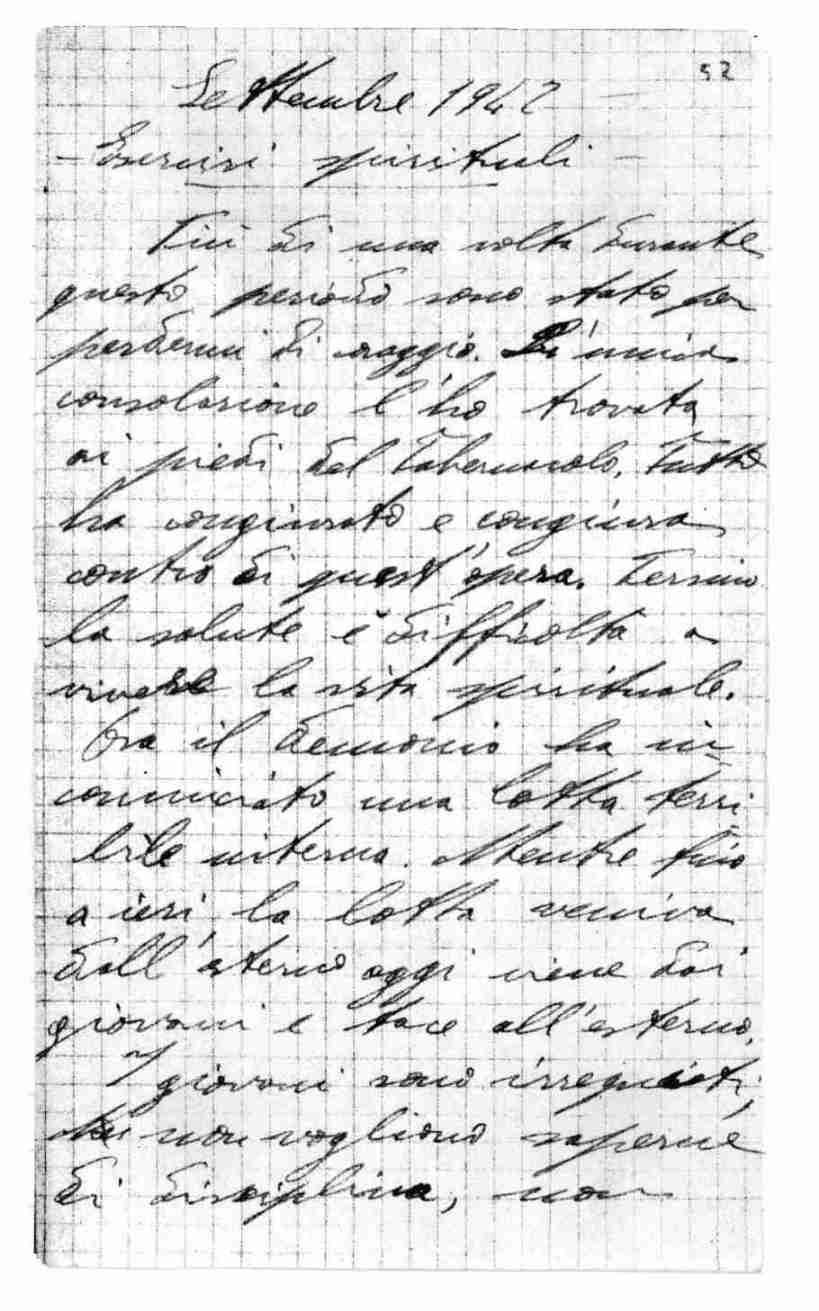 52
Settembre 1942
- Esercizi spirituali -
Più di una volta durante
questo periodo sono stato per
perdermi di coraggio. L'unica
consolazione l'ho trovata
ai piedi del Tabernacolo. Tutto
ha congiurato e congiura
contro di quest'opera. Persino
la salute e difficoltà a
vivere la vita spirituale.
Ora il demonio ha in-
cominciato una lotta terri-
bile interna. Mentre fino
a ieri, la lotta veniva
dall'esterno oggi viene dai
giovani e tace all'esterno.
I giovani sono irrequieti;
non vogliono saperne
di disciplina, non